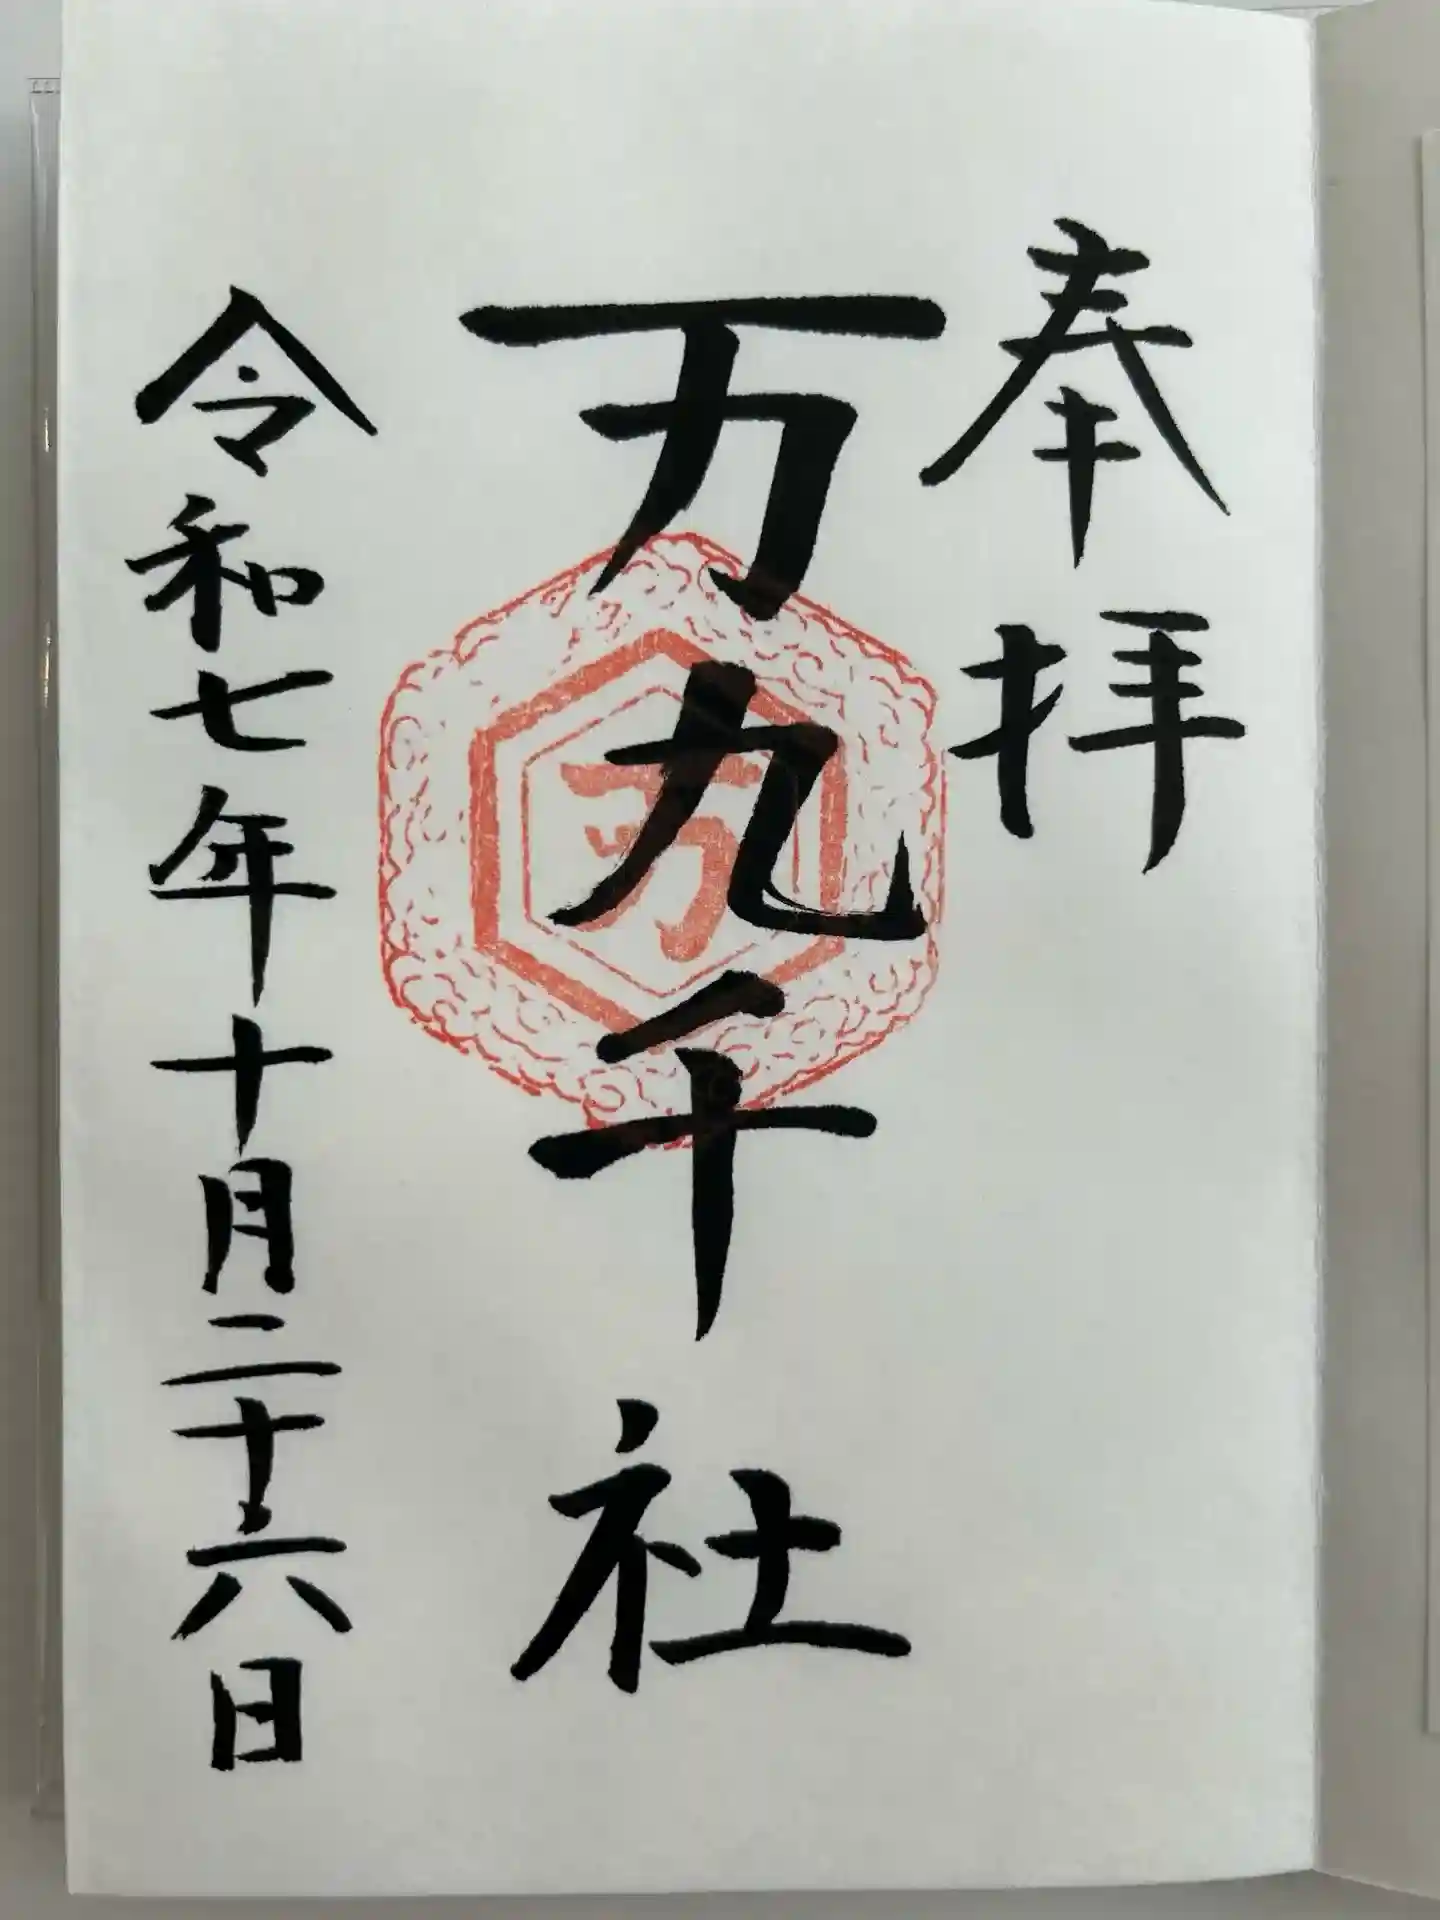 奉拝
万九千社
万
令和七年十月二十六日